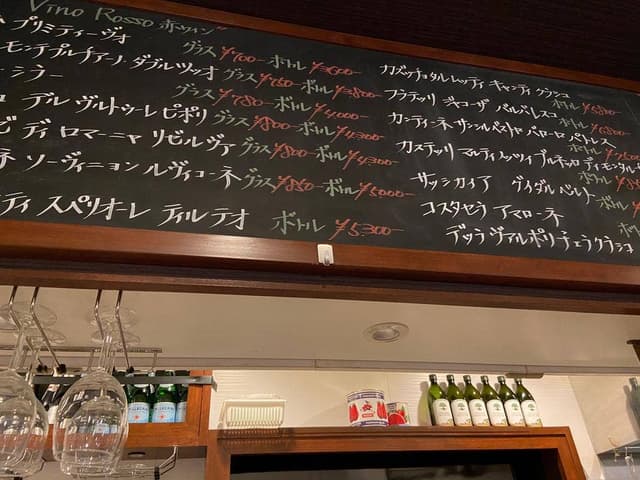 Vino Rosso 赤ワイン
プリミティーヴォ グラス ¥700- ボトル ¥3600-
モンテプルチアーノ・ダブルッツオ グラス ¥750- ボトル ¥3800-
シラー グラス ¥780- ボトル ¥4,000-
デル ヴルトゥーレ ピポリ グラス ¥800- ボトル ¥4,300-
ディ ロマーニャ リゼルヴァ グラス ¥800- ボトル ¥4,300-
ネ ソーヴィニョン ルヴィコーネ グラス ¥850- ボトル ¥5000-
ティ スペリオーレ ティル テオ ボトル ¥5,300-
カズッチョタルレッティ キャンティ クラシコ
ボトル ¥5800-
フラテッリ ジャコーザ バルバレスコ
ボトル
カンティーネ サンシルベストロ バローロ パトレス
ボトル
カステッリ マルティノッツィ ブルネッロ ディ モンタル
ボトル
サッシカイア グイダルベルト
ボト
コスタセラ アマローネ
デッラ ヴァルポリチェラクラシコ